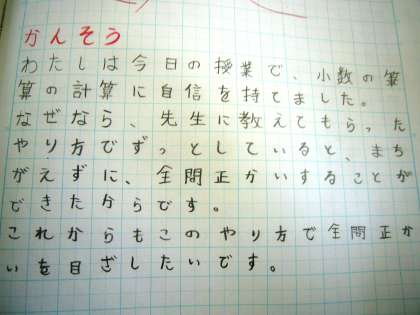 かんそう
わたしは今日の授業で、小数の筆
算の計算に自信を持てました。
なぜなら、先生に教えてもらった
やり方でずっとしていると、まち
がえずに、全問正かいすることが
できたからです。
これからもこのやり方で全問正か
いを目ざしたいです。